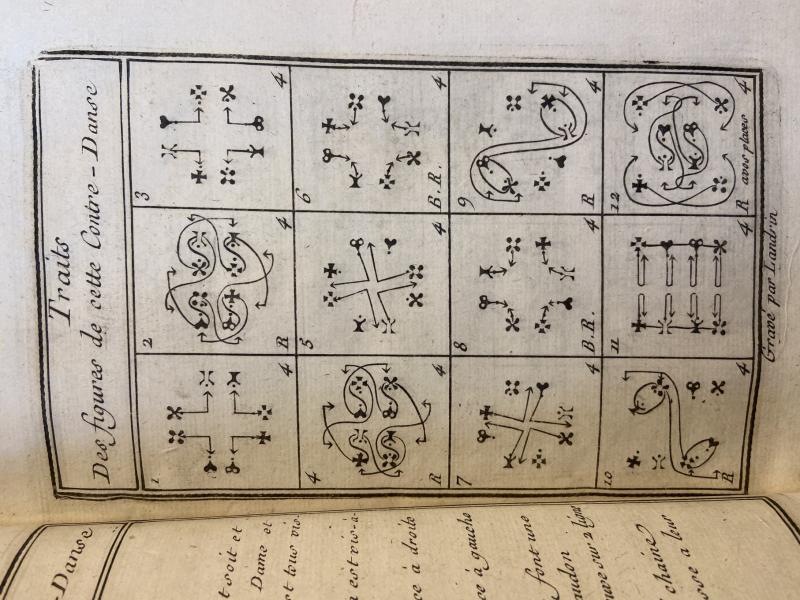 Traits
Des figures de cette Contre-Danse
1
4
2
R
4
3
4
4
R
4
5
4
6
B.R.
4
7
4
8
B.R.
4
9
R
4
10
R
4
11
4
12
R avos places
4
Gravé par Landrin
-Danse
t soit et
Dame et
st tous vis-
n est vis-à-
ce à droite
ce à gauche
font une
audon
uve sur 2 ligne
chaine
sse a leur